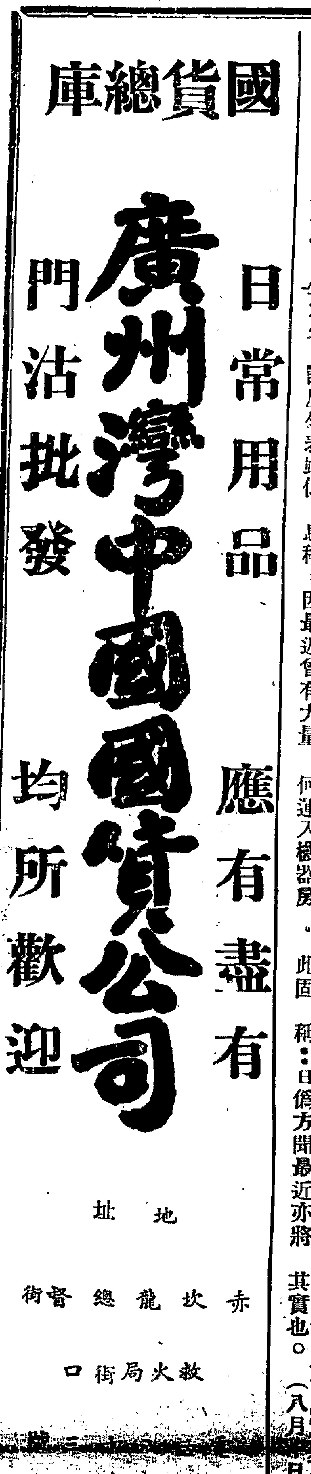 國貨總庫
日常用品 應有盡有
廣州灣中國國貨公司
門沽批發 均所歡迎
地址
赤坎龍總督街
救火局街口